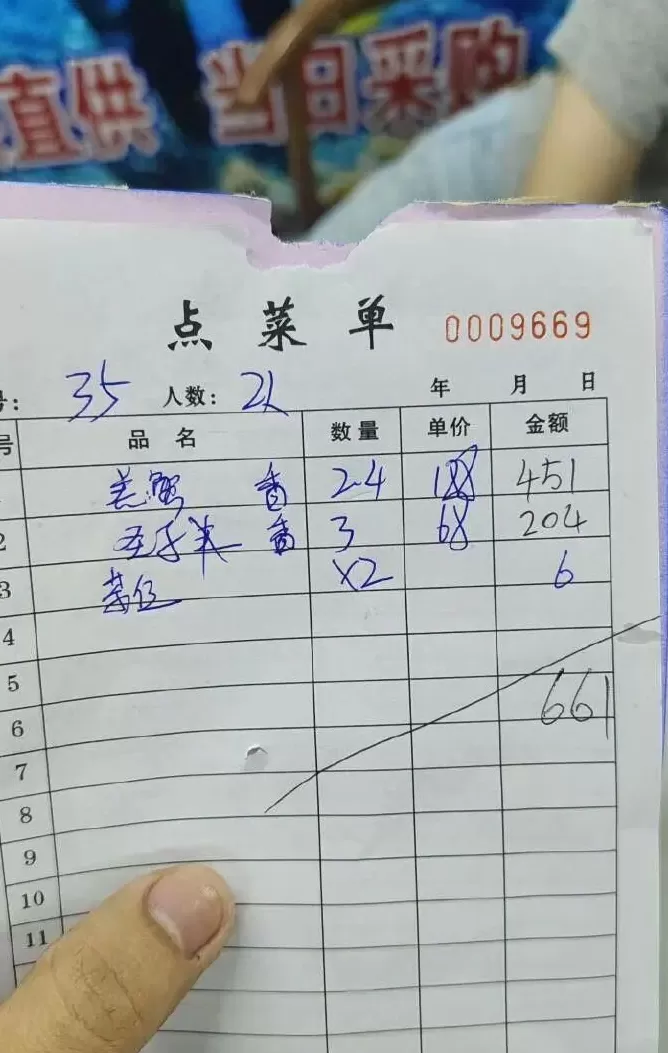 直供 当日采购
点菜单 0009669
号: 35 人数: 2人 年 月 日
号 品名 数量 单价 金额
羔蟹 香 2.4 188 451
圣子米 香 3 68 204
3 茶位 x2 6
4
5
661
6
7
8
9
10
11